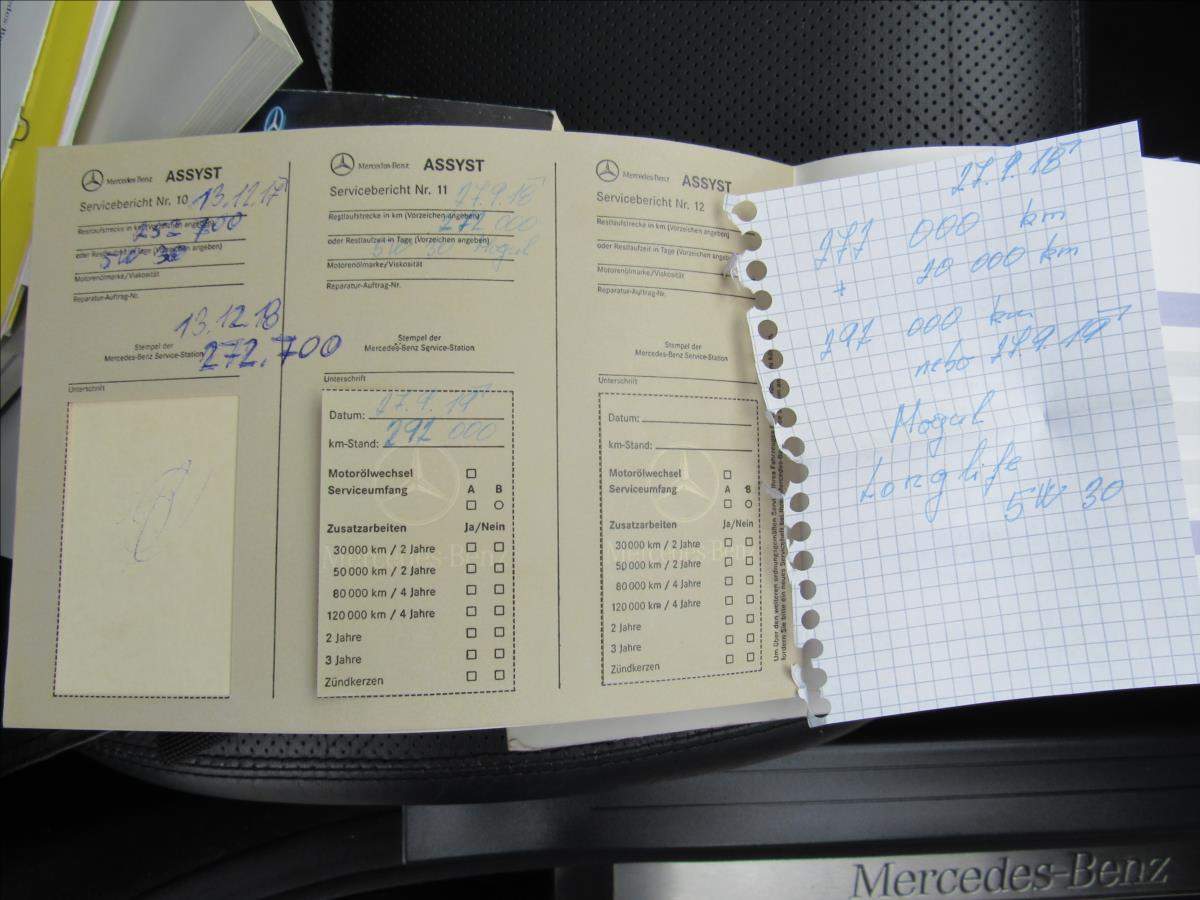 Mercedes-Benz ASSYST
Servicebericht Nr. 10 13.12.17
Restlaufstrecke in km (Vorzeichen angeben)
oder Restlaufzeit in Tage (Vorzeichen angeben)
5W 30
Motorenölmarke/Viskosität
Reparatur-Auftrag-Nr.
13.12.18
Stempel der
Mercedes-Benz Service-Station
272.700
Unterschrift
Mercedes-Benz ASSYST
Servicebericht Nr. 11 27.9.18
Restlaufstrecke in km (Vorzeichen angeben)
272 000
oder Restlaufzeit in Tage (Vorzeichen angeben)
5W 30 Mogul
Motorenölmarke/Viskosität
Reparatur-Auftrag-Nr.
Stempel der
Mercedes-Benz Service-Station
Unterschrift
Datum: 27.9.19
km-Stand: 292 000
Motorölwechsel
Serviceumfang A B
Zusatzarbeiten Ja/Nein
30000 km / 2 Jahre
50000 km / 2 Jahre
80000 km / 4 Jahre
120000 km / 4 Jahre
2 Jahre
3 Jahre
Zündkerzen
Mercedes-Benz
Mercedes-Benz ASSYST
Servicebericht Nr. 12
Restlaufstrecke in km (Vorzeichen
oder Restlaufzeit in Tage (Vorzeichen ang
Motorenölmarke/Viskosität
Reparatur-Auftrag-Nr.
Stempel der
Mercedes-Benz Service-Station
Unterschrift
Datum:
km-Stand:
Motorölwechsel
Serviceumfang A B
Zusatzarbeiten Ja/Nein
30000 km / 2 Jahre
50000 km / 2 Jahre
80000 km / 4 Jahre
120000 km / 4 Jahre
2 Jahre
3 Jahre
Zündkerzen
Mercedes-Benz
27.9.18
277 000 km
+ 20 000 km
297 000 km
nebo 27.9.19
Mogul
Longlife
5W 30
Mercedes-Benz